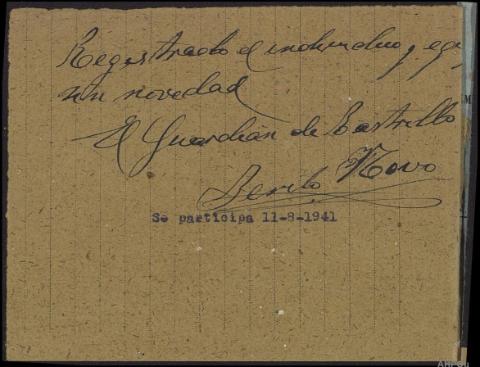 Registrado el individuo y
sin novedad
El Guardian de Castrillo
Benito Novo
Se participa 11-8-1941